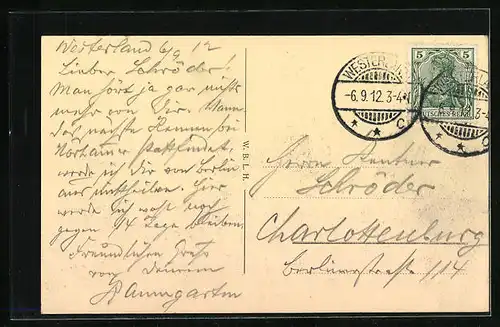 Westerland 6/9 12
Lieber Schröder!
Man hört ja gar nichts
mehr von Dir. Wann
das nächste Rennen bei
stattfindet,
werde ich Dir von Berlin
aus mittheilen. Hier
werde ich wohl noch
gegen 14 Tage bleiben.
Freundlichen Gruß
von Deinem
Baumgarten
W. B. L. H.
WESTERLAND
-6.9.12.3-4
C
5 5
DEUTSCHES REICH
Herrn Rentner
Schröder
Charlottenburg
Berlinerstraße 114